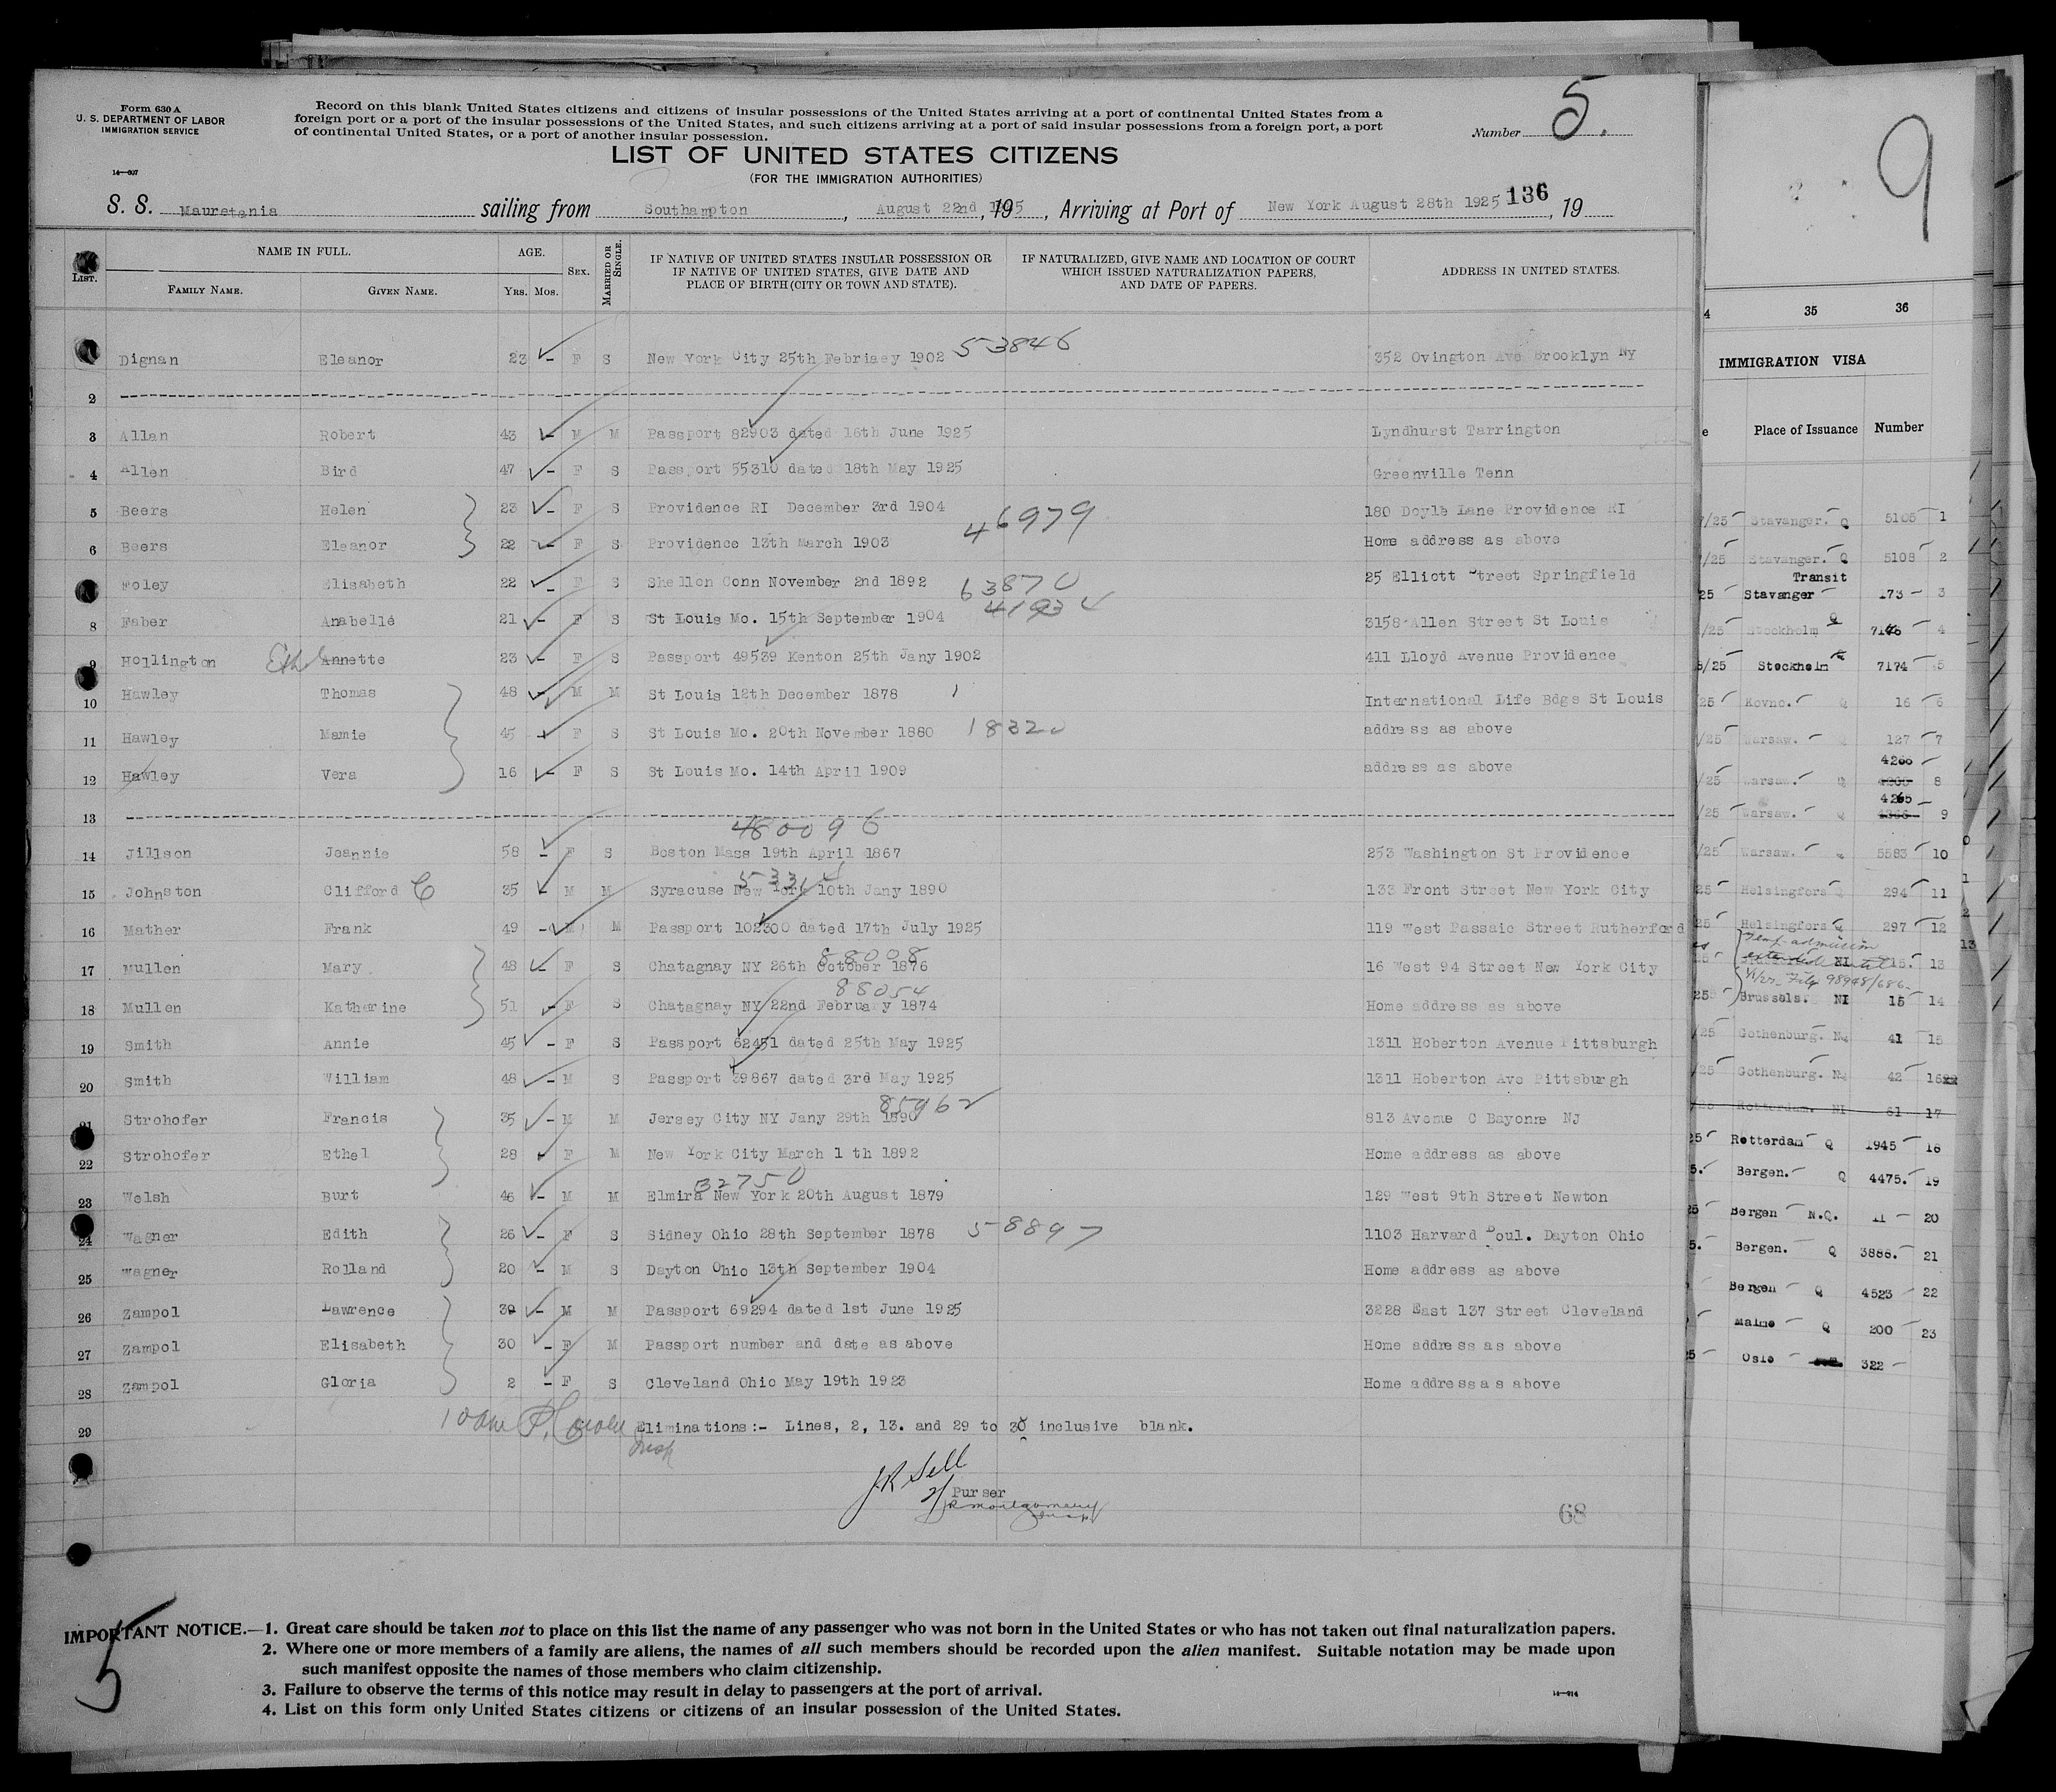 Form 630 A
U. S. DEPARTMENT OF LABOR
IMMIGRATION SERVICE
14—607
Record on this blank United States citizens and citizens of insular possessions of the United States arriving at a port of continental United States from a
foreign port or a port of the insular possessions of the United States, and such citizens arriving at a port of said insular possessions from a foreign port, a port
of continental United States, or a port of another insular possession.
Number 5.
LIST OF UNITED STATES CITIZENS
(FOR THE IMMIGRATION AUTHORITIES)
S. S. Mauretania sailing from Southampton, August 22nd 1925, Arriving at Port of New York August 28th 1925 136, 19
LIST. NAME IN FULL. AGE. SEX. MARRIED OR SINGLE. IF NATIVE OF UNITED STATES INSULAR POSSESSION OR IF NATIVE OF UNITED STATES, GIVE DATE AND PLACE OF BIRTH (CITY OR TOWN AND STATE). IF NATURALIZED, GIVE NAME AND LOCATION OF COURT WHICH ISSUED NATURALIZATION PAPERS, AND DATE OF PAPERS. ADDRESS IN UNITED STATES.
FAMILY NAME. GIVEN NAME. YRS. MOS.
Dignan Eleanor 23 - F S New York City 25th Febriaey 1902 53846 352 Ovington Ave Brooklyn NY
2
3 Allan Robert 43 - M M Passport 82903 dated 16th June 1925 Lyndhurst Tarrington
4 Allen Bird 47 - F S Passport 55310 dated 18th May 1925 Greenville Tenn
5 Beers Helen 23 - F S Providence RI December 3rd 1904 46979 180 Doyle Lane Providence RI
6 Beers Eleanor 22 - F S Providence 13th March 1903 Home address as above
Foley Elisabeth 22 - F S Shellon Conn November 2nd 1892 63870 25 Elliott Street Springfield
8 Faber Anabelle 21 - F S St Louis Mo. 15th September 1904 41934 3158 Allen Street St Louis
9 Hollington Ethel Annette 23 - F S Passport 49539 Kenton 25th Jany 1902 411 Lloyd Avenue Providence
10 Hawley Thomas 48 - M M St Louis 12th December 1878 International Life Bdgs St Louis
11 Hawley Mamie 45 - F S St Louis Mo. 20th November 1880 18320 address as above
12 Hawley Vera 16 - F S St Louis Mo. 14th April 1909 address as above
13
480096
14 Jillson Jeannie 58 - F S Boston Mass 19th April 1867 253 Washington St Providence
15 Johnston Clifford C 35 - M M Syracuse New York 10th Jany 1890 133 Front Street New York City
16 Mather Frank 49 - M M Passport 102300 dated 17th July 1925 119 West Passaic Street Rutherford
88008
17 Mullen Mary 48 - F S Chatagnay NY 26th October 1876 16 West 94 Street New York City
88054
18 Mullen Katharine 51 - F S Chatagnay NY 22nd February 1874 Home address as above
19 Smith Annie 45 - F S Passport 62451 dated 25th May 1925 1311 Hoberton Avenue Pittsburgh
20 Smith William 48 - M S Passport 39867 dated 3rd May 1925 1311 Hoberton Ave Pittsburgh
85962
21 Strohofer Francis 35 - M M Jersey City NY Jany 29th 1890 813 Avenue C Bayonne NJ
22 Strohofer Ethel 28 F M New York City March 1 th 1892 Home address as above
32750
23 Welsh Burt 46 - M M Elmira New York 20th August 1879 129 West 9th Street Newton
24 Wagner Edith 26 - F S Sidney Ohio 28th September 1878 58897 1103 Harvard Boul. Dayton Ohio
25 Wagner Rolland 20 - M S Dayton Ohio 13th September 1904 Home address as above
26 Zampol Lawrence 39 - M M Passport 69294 dated 1st June 1925 3228 East 137 Street Cleveland
27 Zampol Elisabeth 30 - F M Passport number and date as above Home address as above
28 Zampol Gloria 2 - F S Cleveland Ohio May 19th 1923 Home address as above
29 Eliminations:- Lines, 2, 13. and 29 to 30 inclusive blank.
Insp
J R Sell
Purser
R Montgomery
68
IMPORTANT NOTICE.—1. Great care should be taken not to place on this list the name of any passenger who was not born in the United States or who has not taken out final naturalization papers.
2. Where one or more members of a family are aliens, the names of all such members should be recorded upon the alien manifest. Suitable notation may be made upon
such manifest opposite the names of those members who claim citizenship.
3. Failure to observe the terms of this notice may result in delay to passengers at the port of arrival.
4. List on this form only United States citizens or citizens of an insular possession of the United States.
14—914
5
9
4 35 36
IMMIGRATION VISA
e Place of Issuance Number
/25 Stavanger. Q 5105 1
/25 Stavanger. Q 5108 2
Transit
25 Stavanger 173 3
/25 Stockholm Q 4
5/25 Stockholm 7174 5
25 Kovno. Q 16 6
/25 Warsaw. Q 127 7
4266
/25 Warsaw. Q 8
4265
/25 Warsaw. Q 9
/25 Warsaw. Q 5583 10
25 Helsingfors 294 11
25 Helsingfors Q 297 12
Temp admission
NI 15. 13
File 98948/686
25 Brussels. NI 15 14
/25 Gothenburg. 41 15
/25 Gothenburg. 42 16
/25 Rotterdam. NI 61 17
25 Rotterdam Q 1945 18
5. Bergen. Q 4475. 19
25 Bergen N.Q. 11 20
5. Bergen. Q 3888. 21
Bergen Q 4523 22
Malmo Q 200 23
25 Oslo 322